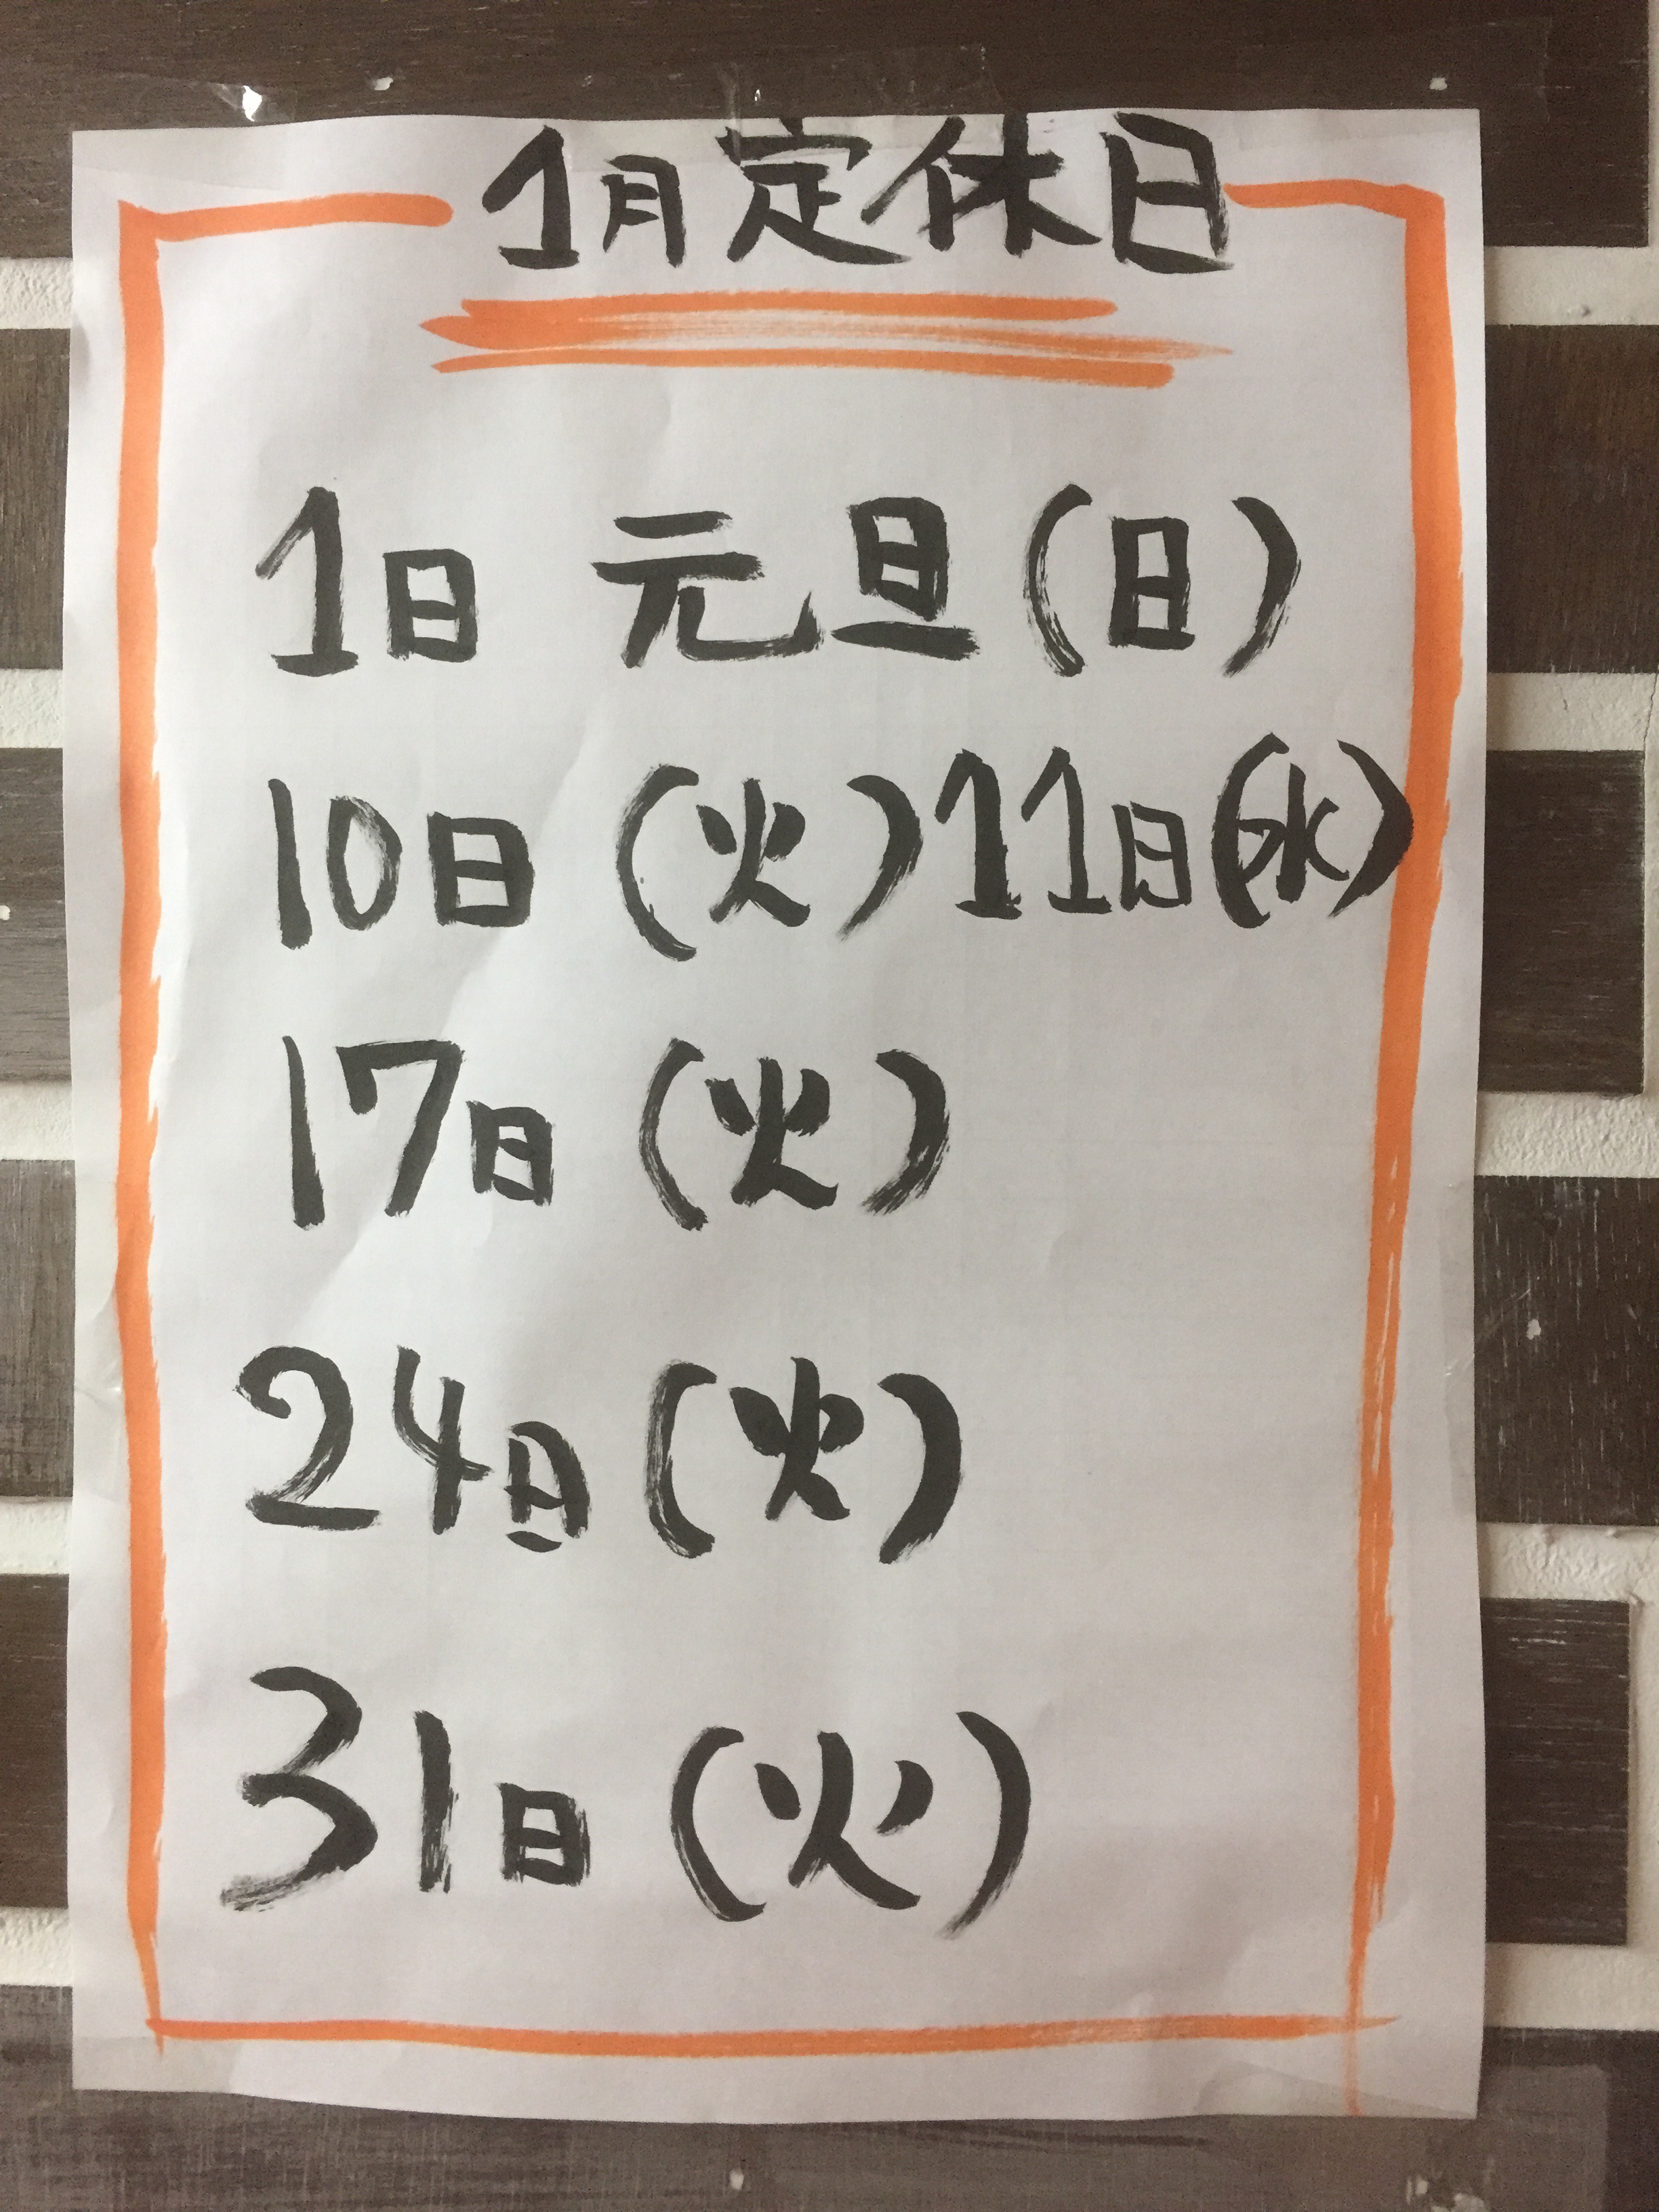 1月定休日
1日 元旦(日)
10日(火)11日(水)
17日(火)
24日(火)
31日(火)